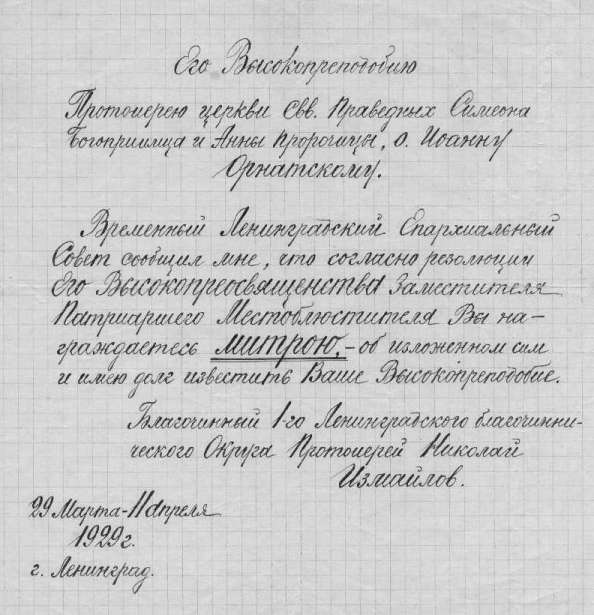 Его Высокопреподобию
Протоиерею церкви Свв. Праведных Симеона
Богоприимца и Анны Пророчицы, о. Иоанну
Орнатскому.
Временный Ленинградский Епархиальный
Совет сообщил мне, что согласно резолюции
Его Высокопреосвященства Заместителя
Патриаршего Местоблюстителя Вы на-
граждаетесь митрою, - об изложенном сим
и имею долг известить Ваше Высокопреподобие.
Благочинный 1-го Ленинградского благочинни-
ческого Округа Протоиерей Николай
Измайлов.
29 Марта-11 Апреля
1929 г.
г. Ленинград.